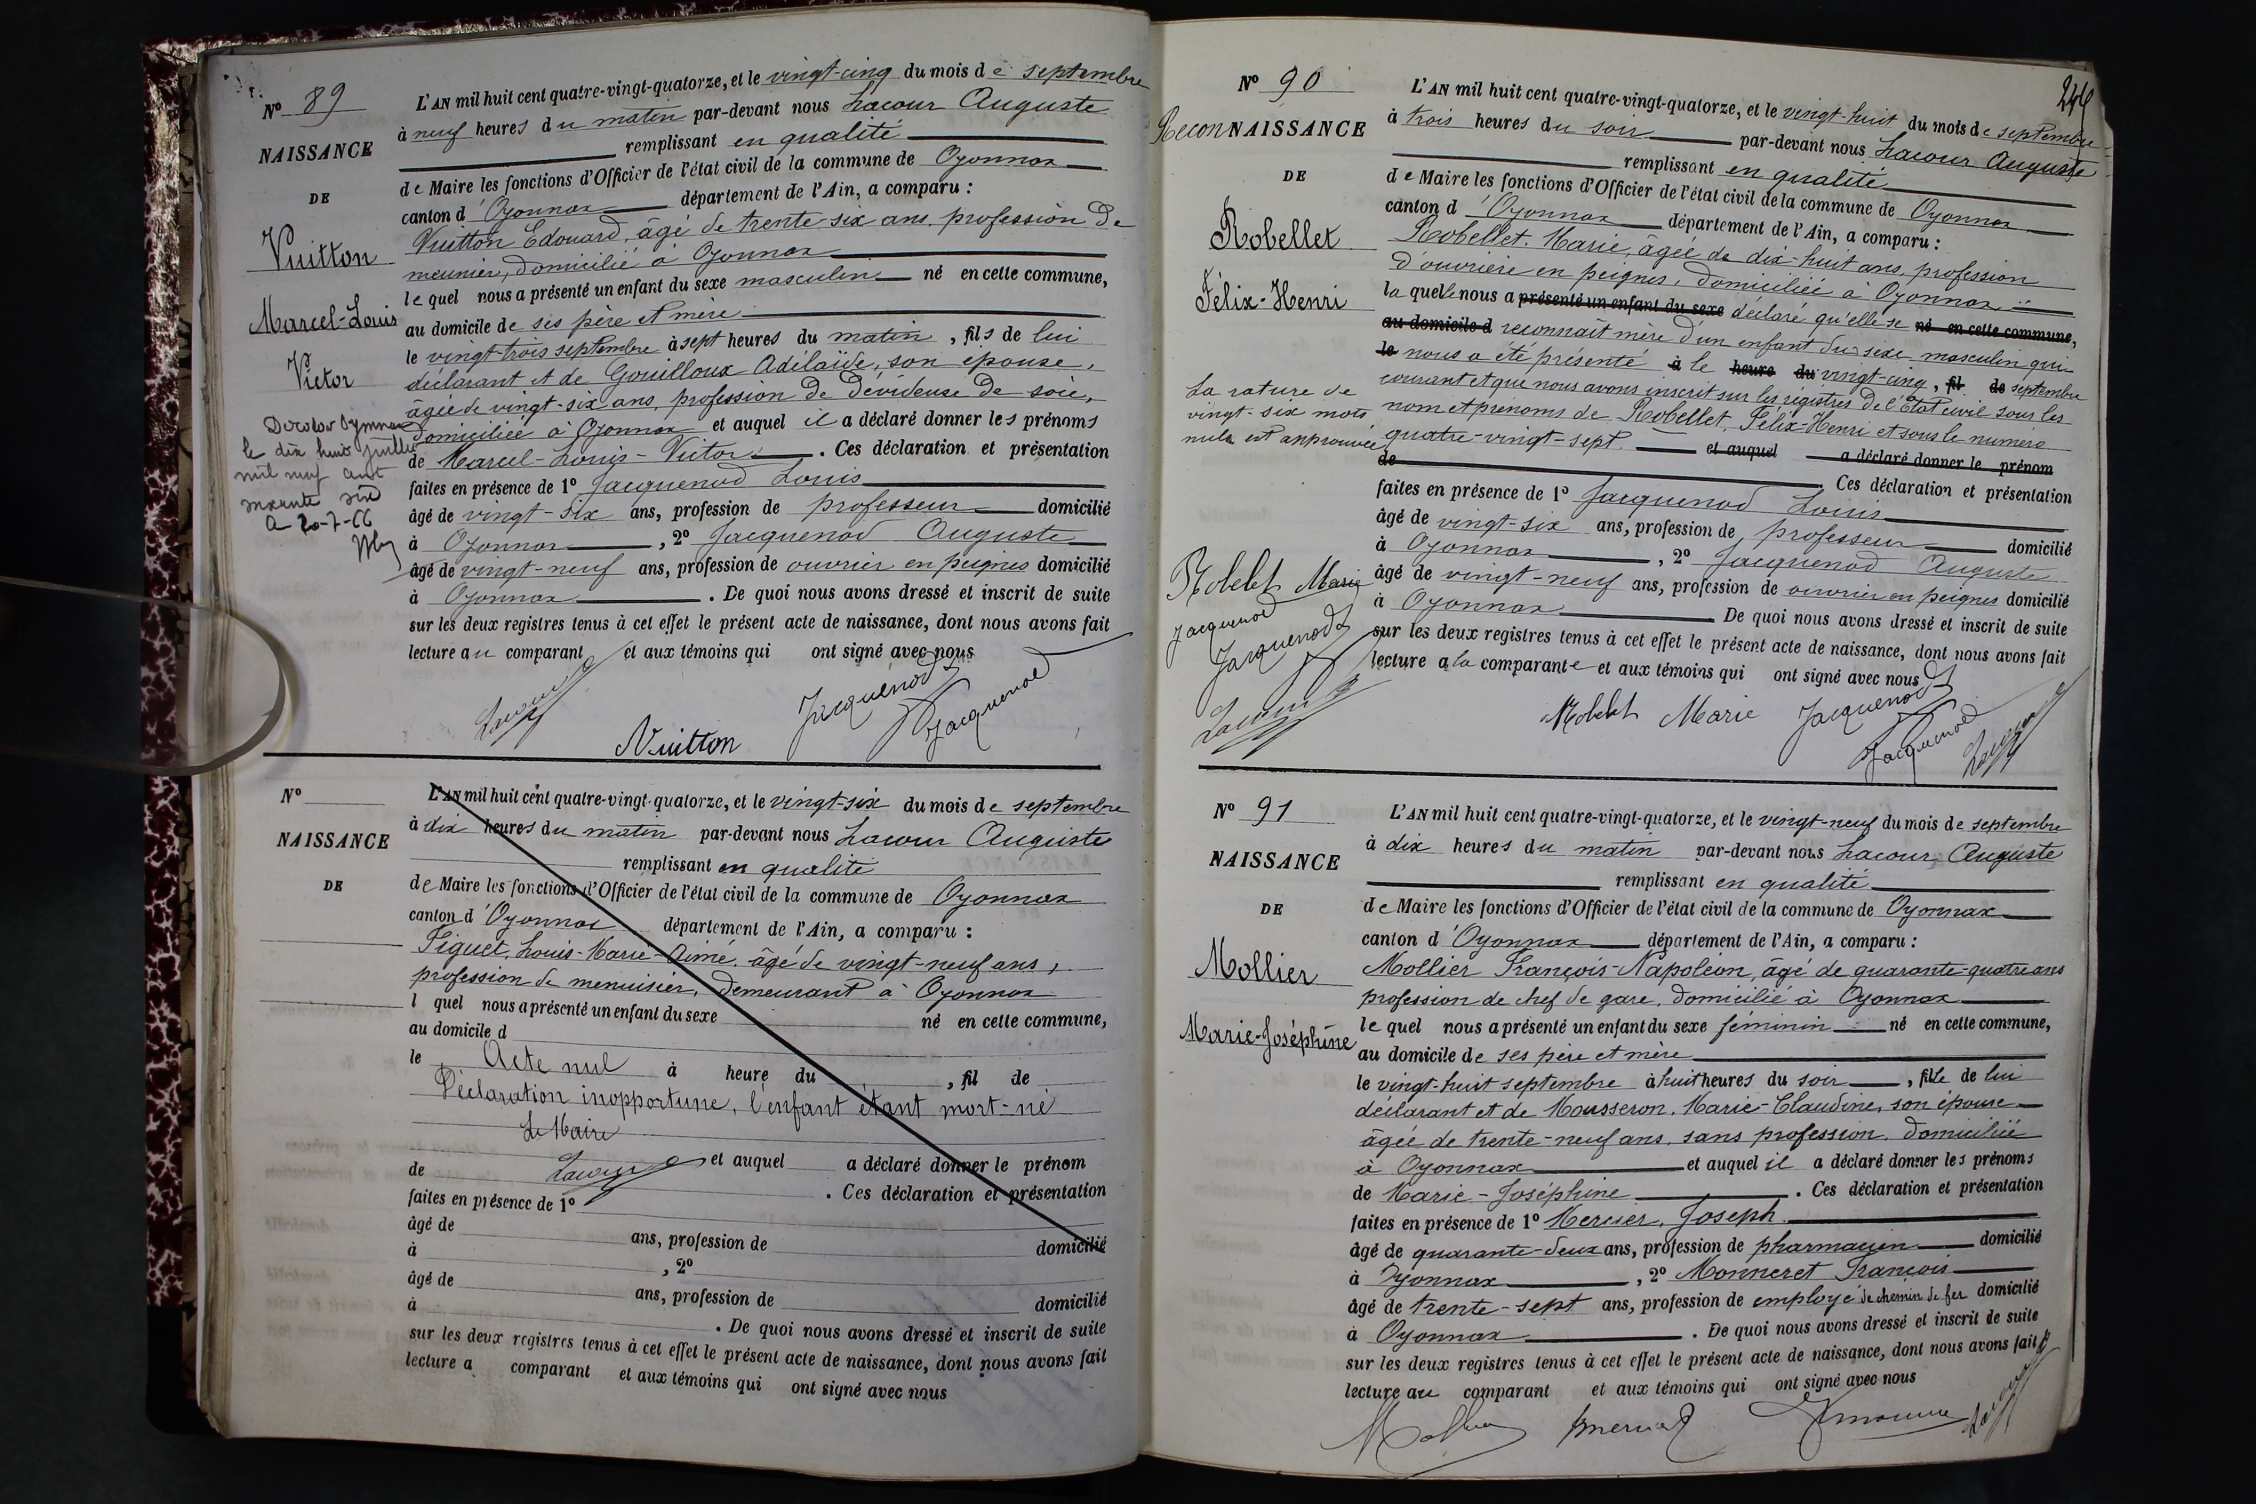 Nº 89
NAISSANCE
DE
Vuitton
Marcel-Louis
Victor
le dix huit juillet
mil neuf cent
soixante six
20-7-66
L'AN mil huit cent quatre-vingt-quatorze, et le vingt-cinq du mois de septembre
à neuf heures du matin par-devant nous Lacour Auguste
remplissant en qualité
de Maire les fonctions d'Officier de l'état civil de la commune de Oyonnax
canton d'Oyonnax département de l'Ain, a comparu :
Vuitton Edouard, âgé de trente-six ans, profession de
meunier, domicilié à Oyonnax
lequel nous a présenté un enfant du sexe masculin né en cette commune,
au domicile de ses père et mère
le vingt-trois septembre à sept heures du matin, fils de lui
déclarant et de Gouilloux Adélaïde, son épouse,
âgée de vingt-six ans, profession de dévideuse de soie,
domiciliée à Oyonnax et auquel il a déclaré donner les prénoms
de Marcel-Louis-Victor. Ces déclaration et présentation
faites en présence de 1º Jacquenod Louis
âgé de vingt-six ans, profession de professeur domicilié
à Oyonnax, 2º Jacquenod Auguste
âgé de vingt-neuf ans, profession de ouvrier en peignes domicilié
à Oyonnax. De quoi nous avons dressé et inscrit de suite
sur les deux registres tenus à cet effet le présent acte de naissance, dont nous avons fait
lecture au comparant et aux témoins qui ont signé avec nous
Lacour Vuitton Jacquenod Jacquenod
Nº
NAISSANCE
DE
L'AN mil huit cent quatre-vingt-quatorze, et le vingt-six du mois de septembre
à dix heures du matin par-devant nous Lacour Auguste
remplissant en qualité
de Maire les fonctions d'Officier de l'état civil de la commune de Oyonnax
canton d'Oyonnax département de l'Ain, a comparu :
Figuet, Louis-Marie-Aimé, âgé de vingt-neuf ans,
profession de menuisier, demeurant à Oyonnax
l quel nous a présenté un enfant du sexe né en cette commune,
au domicile d
le Acte nul à heure du , fil de
Déclaration inopportune, l'enfant étant mort-né
Le Maire
Lacour et auquel a déclaré donner le prénom
de . Ces déclaration et présentation
faites en présence de 1º
âgé de ans, profession de domicilié
à , 2º
âgé de ans, profession de domicilié
à . De quoi nous avons dressé et inscrit de suite
sur les deux registres tenus à cet effet le présent acte de naissance, dont nous avons fait
lecture a comparant et aux témoins qui ont signé avec nous
Nº 90
ReconNAISSANCE
DE
Robellet
Félix-Henri
La rature de
vingt-six mots
nuls est approuvée
Robelet Marie
Jacquenod
Jacquenod
Lacour
L'AN mil huit cent quatre-vingt-quatorze, et le vingt-huit du mois de septembre
à trois heures du soir par-devant nous Lacour Auguste
remplissant en qualité
de Maire les fonctions d'Officier de l'état civil de la commune de Oyonnax
canton d'Oyonnax département de l'Ain, a comparu :
Robellet. Marie, âgée de dix-huit ans, profession
d'ouvrière en peignes, domiciliée à Oyonnax
laquelle nous a présenté un enfant du sexe déclaré qu'elle se né en cette commune,
au domicile d reconnaît mère d'un enfant du sexe masculin qui
le nous a été présenté à le heure du vingt-cinq, fil de septembre
courant et que nous avons inscrit sur les régistres de l'État civil sous les
nom et prénoms de Robellet, Félix-Henri et sous le numéro
quatre-vingt-sept. et auquel a déclaré donner le prénom
de Ces déclaration et présentation
faites en présence de 1º Jacquenod Louis
âgé de vingt-six ans, profession de professeur domicilié
à Oyonnax, 2º Jacquenod Auguste
âgé de vingt-neuf ans, profession de ouvrier en peignes domicilié
à Oyonnax De quoi nous avons dressé et inscrit de suite
sur les deux registres tenus à cet effet le présent acte de naissance, dont nous avons fait
lecture a la comparante et aux témoins qui ont signé avec nous
Robelet Marie Jacquenod Jacquenod Lacour
Nº 91
NAISSANCE
DE
Mollier
Marie-Joséphine
L'AN mil huit cent quatre-vingt-quatorze, et le vingt-neuf du mois de septembre
à dix heures du matin par-devant nous Lacour Auguste
remplissant en qualité
de Maire les fonctions d'Officier de l'état civil de la commune de Oyonnax
canton d'Oyonnax département de l'Ain, a comparu :
Mollier François-Napoléon, âgé de quarante-quatre ans
profession de chef de gare, domicilié à Oyonnax
lequel nous a présenté un enfant du sexe féminin né en cette commune,
au domicile de ses père et mère
le vingt-huit septembre à huit heures du soir, fille de lui
déclarant et de Mousseron, Marie-Claudine, son épouse
âgée de trente-neuf ans, sans profession, domiciliée
à Oyonnax et auquel il a déclaré donner les prénoms
de Marie-Joséphine. Ces déclaration et présentation
faites en présence de 1º Mercier, Joseph
âgé de quarante-deux ans, profession de pharmacien domicilié
à Oyonnax, 2º Monneret François
âgé de trente-sept ans, profession de employé de chemin de fer domicilié
à Oyonnax. De quoi nous avons dressé et inscrit de suite
sur les deux registres tenus à cet effet le présent acte de naissance, dont nous avons fait
lecture au comparant et aux témoins qui ont signé avec nous
Lacour